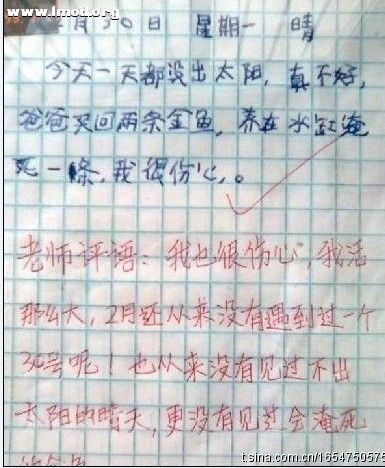 www.lmod.org
月30日 星期一 晴
今天一天都没出太阳,真不好,
爸爸买回两条金鱼,养在水缸淹
死一條,我很伤心,。
老师评语:我也很伤心,我活
那么大,2月还从来没有遇到过一个
30号呢!也从来没有见过不出
太阳的晴天,更没有见过会淹死
t.sina.com.cn/165475057